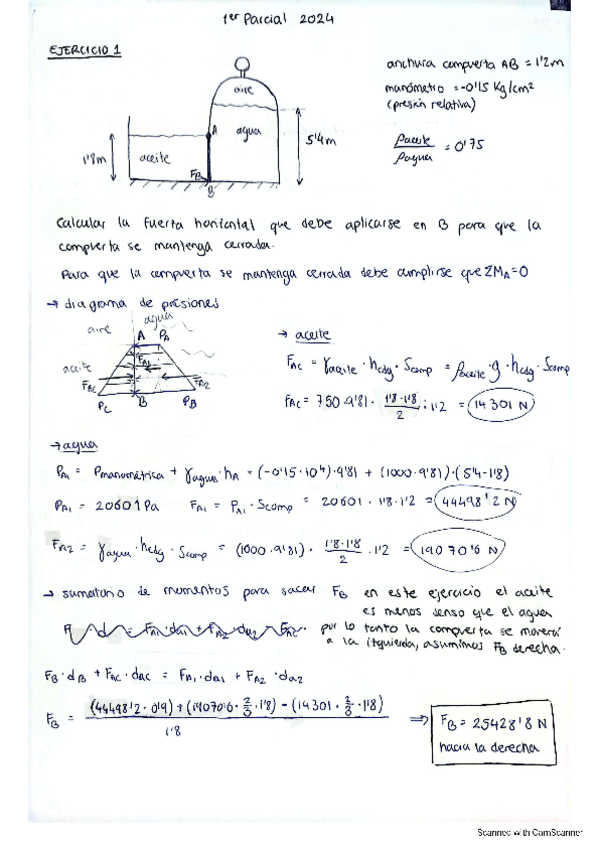 1er Parcial 2024
EJERCICIO 1
anchura compuerta AB = 1'2m
manómetro = -0'15 Kg/cm²
(presión relativa)
ρaceite / ρagua = 0'75
aire
agua
A
5'4m
1'8m
aceite
FB
B
Calcular la fuerza horizontal que debe aplicarse en B para que la
compuerta se mantenga cerrada.
Para que la compuerta se mantenga cerrada debe cumplirse que ΣMA=0
→ diagrama de presiones
aire
agua
A PA
aceite
FA1
FAC
FA2
PC B PB
→ aceite
FAC = γaceite · hcdg · Scomp = ρaceite · g · hcdg · Scomp
FAC = 750 · 9'81 · 1'8·1'8/2 · 1'2 = 14301 N
→ agua
PA1 = Pmanométrica + γagua · hA = (-0'15·10⁴)·9'81 + (1000·9'81)·(5'4-1'8)
PA1 = 20601 Pa FA1 = PA1 · Scomp = 20601 · 1'8·1'2 = 44498'2 N
FA2 = γagua · hcdg · Scomp = (1000·9'81) · 1'8·1'8/2 · 1'2 = 19070'6 N
→ sumatorio de momentos para sacar FB
en este ejercicio el aceite
es menos denso que el agua
por lo tanto la compuerta se moverá
a la izquierda, asumimos FB derecha.
FB · dB + FAC · dAC = FA1 · dA1 + FA2 · dA2
FB = (44498'2 · 0'9) + (19070'6 · 2/3 · 1'8) - (14301 · 2/3 · 1'8) / 1'8
⇒ FB = 25428'8 N
hacia la derecha
Scanned with CamScanner